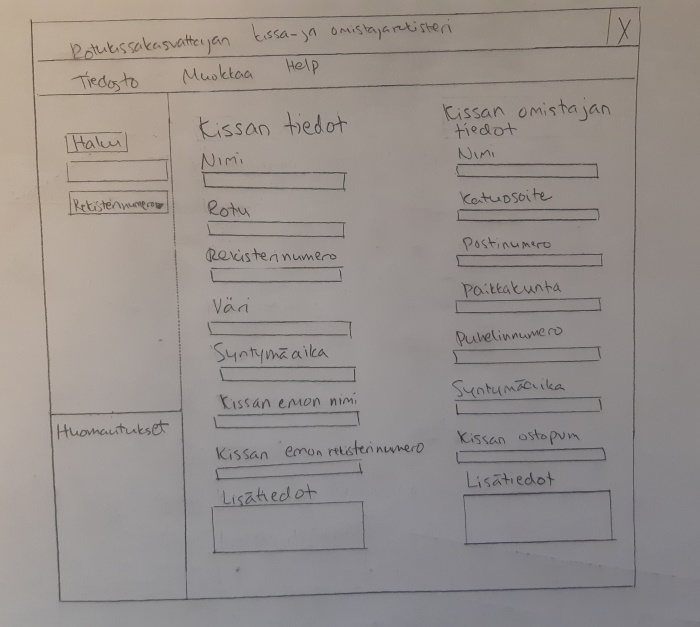 Rotukissakasvattajan kissa-ja omistajarekisteri X
Tiedosto Muokkaa Help
Haku
Rekisterinumero
Huomautukset
Kissan tiedot
Nimi
Rotu
Rekisterinumero
Väri
Syntymäaika
Kissan emon nimi
Kissan emon rekisterinumero
Lisätiedot
Kissan omistajan
tiedot
Nimi
Katuosoite
Postinumero
Paikkakunta
Puhelinnumero
Syntymäaika
Kissan ostopvm
Lisätiedot